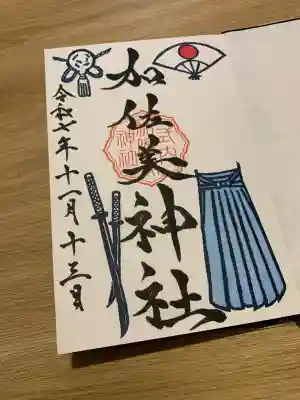 加佐美神社
令和七年十一月十三日